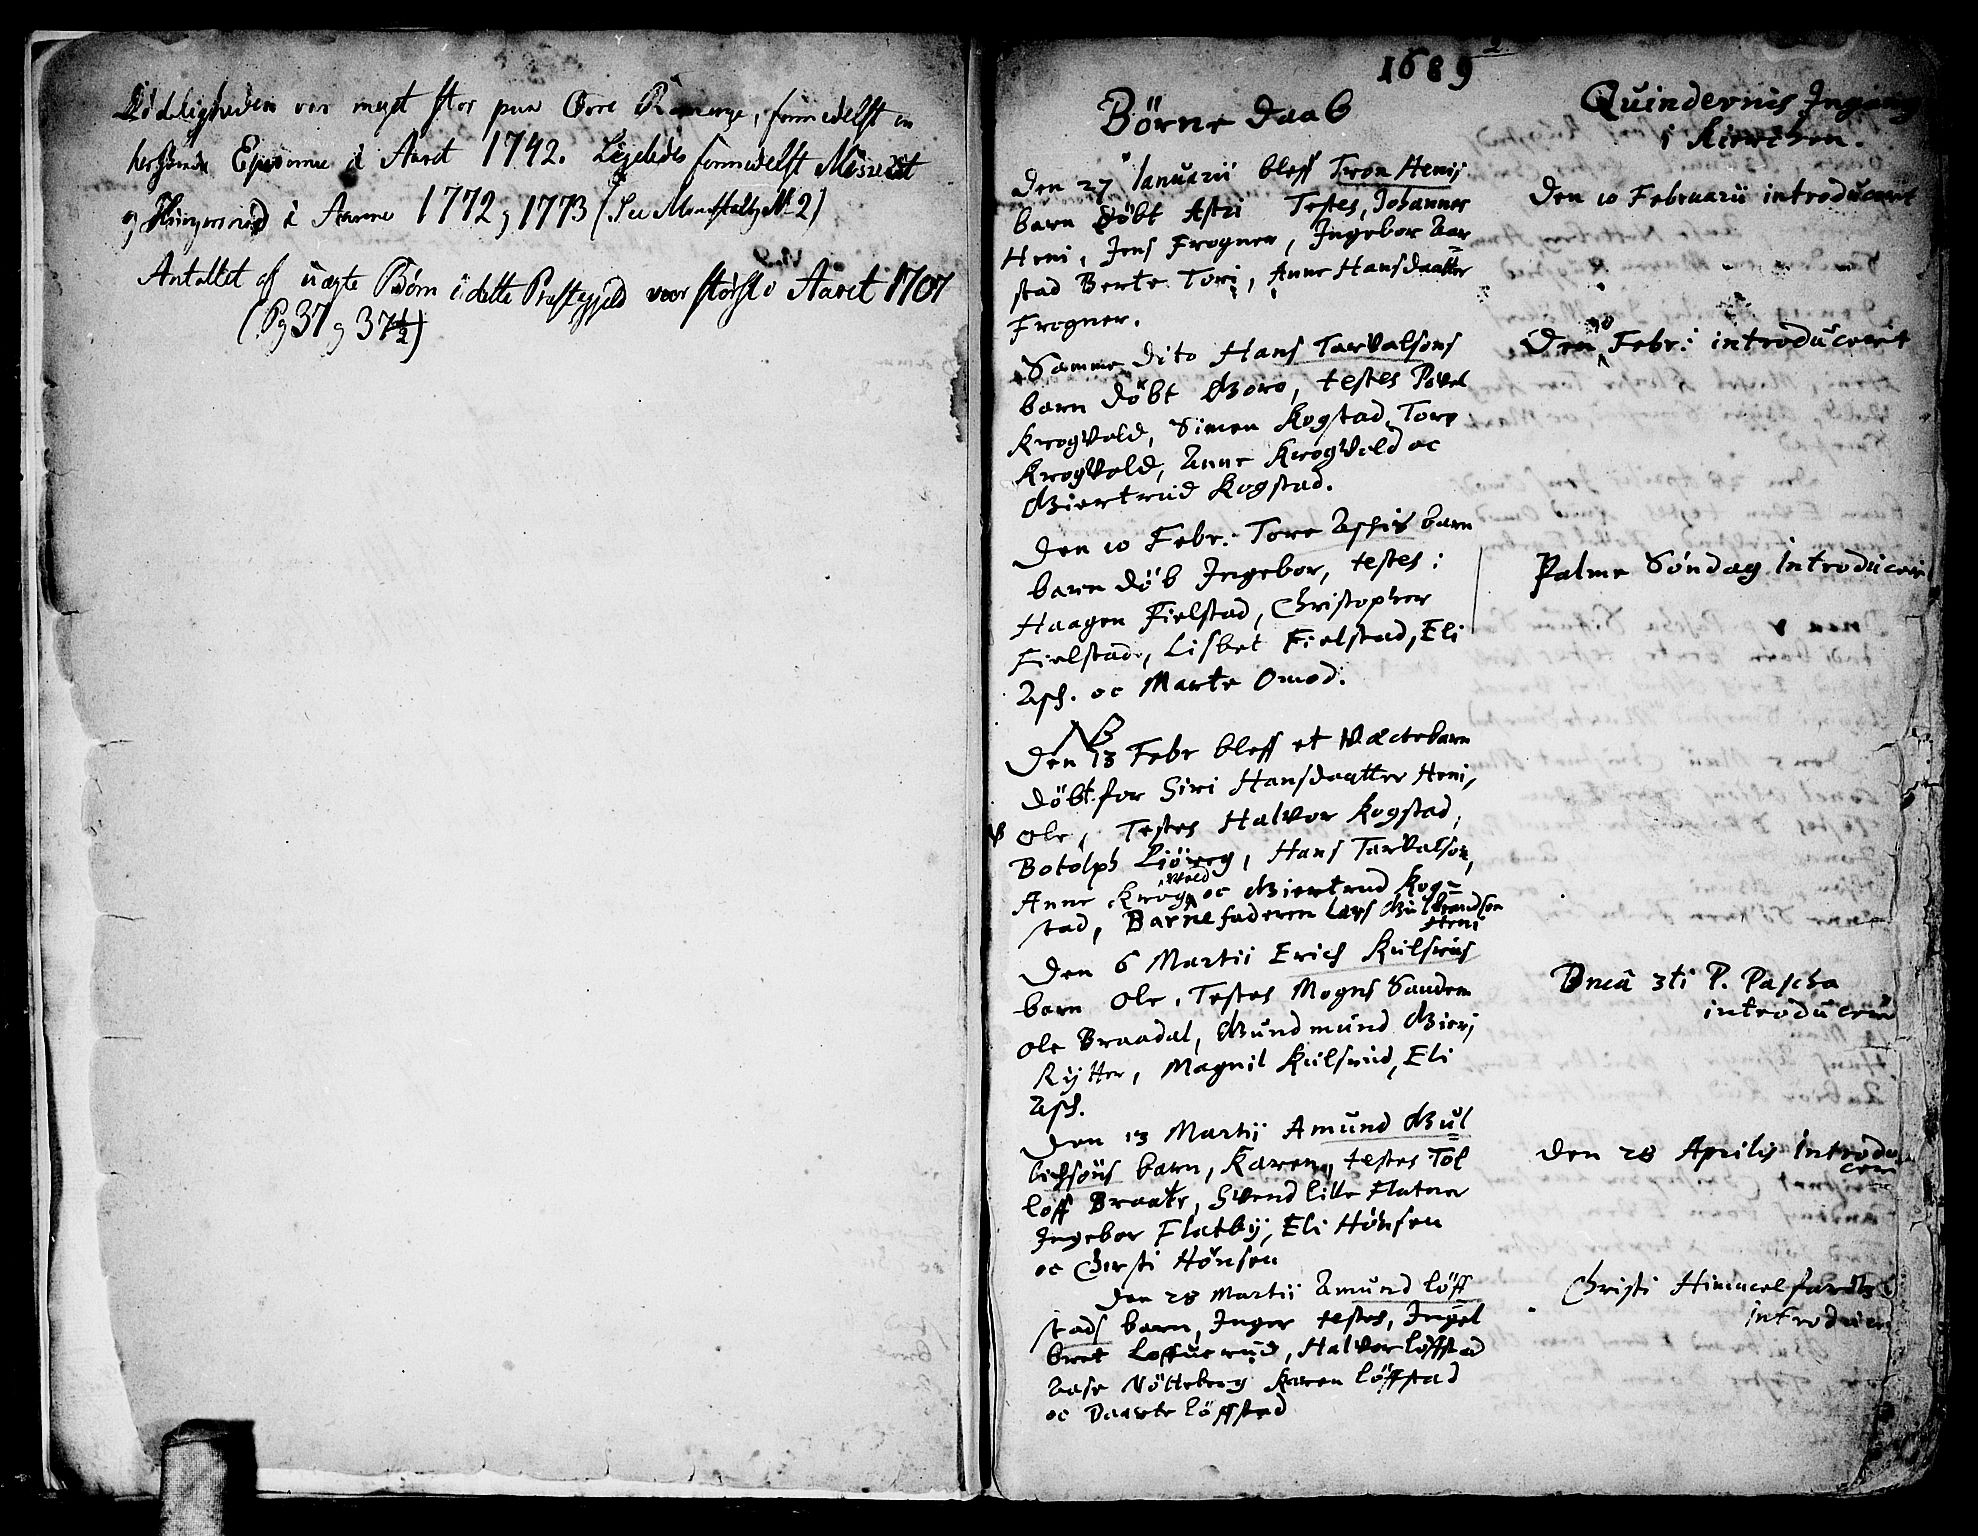 Dödeligheden var meget stor paa Øvre Romerige, formedelst en
herskende Epidemie i Aaret 1742. Ligeledes formedelst Misvext
og Hungersnød i Aarene 1772 og 1773 (See Mandtallet No 2)
Antallet af uægte Børn i dette Præstegjeld var størst i Aaret 1707
(Pg 37 og 37½)
2.
1689
Börne Daab
Den 27 Januarii bleff Tron Henijs
barn döbt Astri Testes, Johannes
Heni, Jens Frogner, Ingebor Aar
stad Berte Tori, Anne Hansdaatter
Frogner.
Samme dito Hans Tarvalsöns
barn döbt Goro, testes Povel
KrogVold, Simen Kogstad, Tore
KrogVold, Anne KrogVold oc
Giertrud Kogstad.
Den 10 Febr: Tore Aschis barn
barn döb Ingebor, testes:
Haagen Fielstad, Christopher
Fielstad, Lisbet Fielstad, Eli
Asch. oc Marte Omod.
NB
Den 13 Febr bleff et Væctebarn
döbt for Siri Hansdaatter Heni,
Ole, Testes Halvor Kogstad,
Botolph, Hans Tarvalson,
Anne Krogvold oc Giertrud Kog=
stad, Barnefaderen Lars Gulbrandson
Heni
Den 6 Martii Erich Kulsruds
barn Ole, Testes Mogns Sandem
Ole Braadal, Gundmund Gieri
Rytter, Magnil Kulsrud, Eli
Asch.
Den 13 Martij Amund Gul
bichsöns barn, Karen, testes Tol
loff Braate, Svend lille Flatner
Ingebor Flatby, Eli Hönsen
oc Chirsti Hönsen
Den 28 Martii Amund löff
stads barn, Inger testes, Ingel
bret Loffuerud, Halvor löffstad
Aase Nötteberg Karen löffstad
oc Daarte löffstad
Quindernis Ingang
i Kirchen.
Den 10 Februarii introduceret
Den 10 Febr: introduceret
Palme Söndag Introducerit
Dnca 3ti P. Pascha
introducerit
Den 28 Aprilis introdu
cerit
Christi Himmelfarts
introducerit